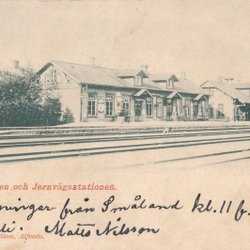 en och Jernvägsstationen.
ningar från Småland kl. 11 f.
li. Matts Nilsson
blom, Alfvesta.